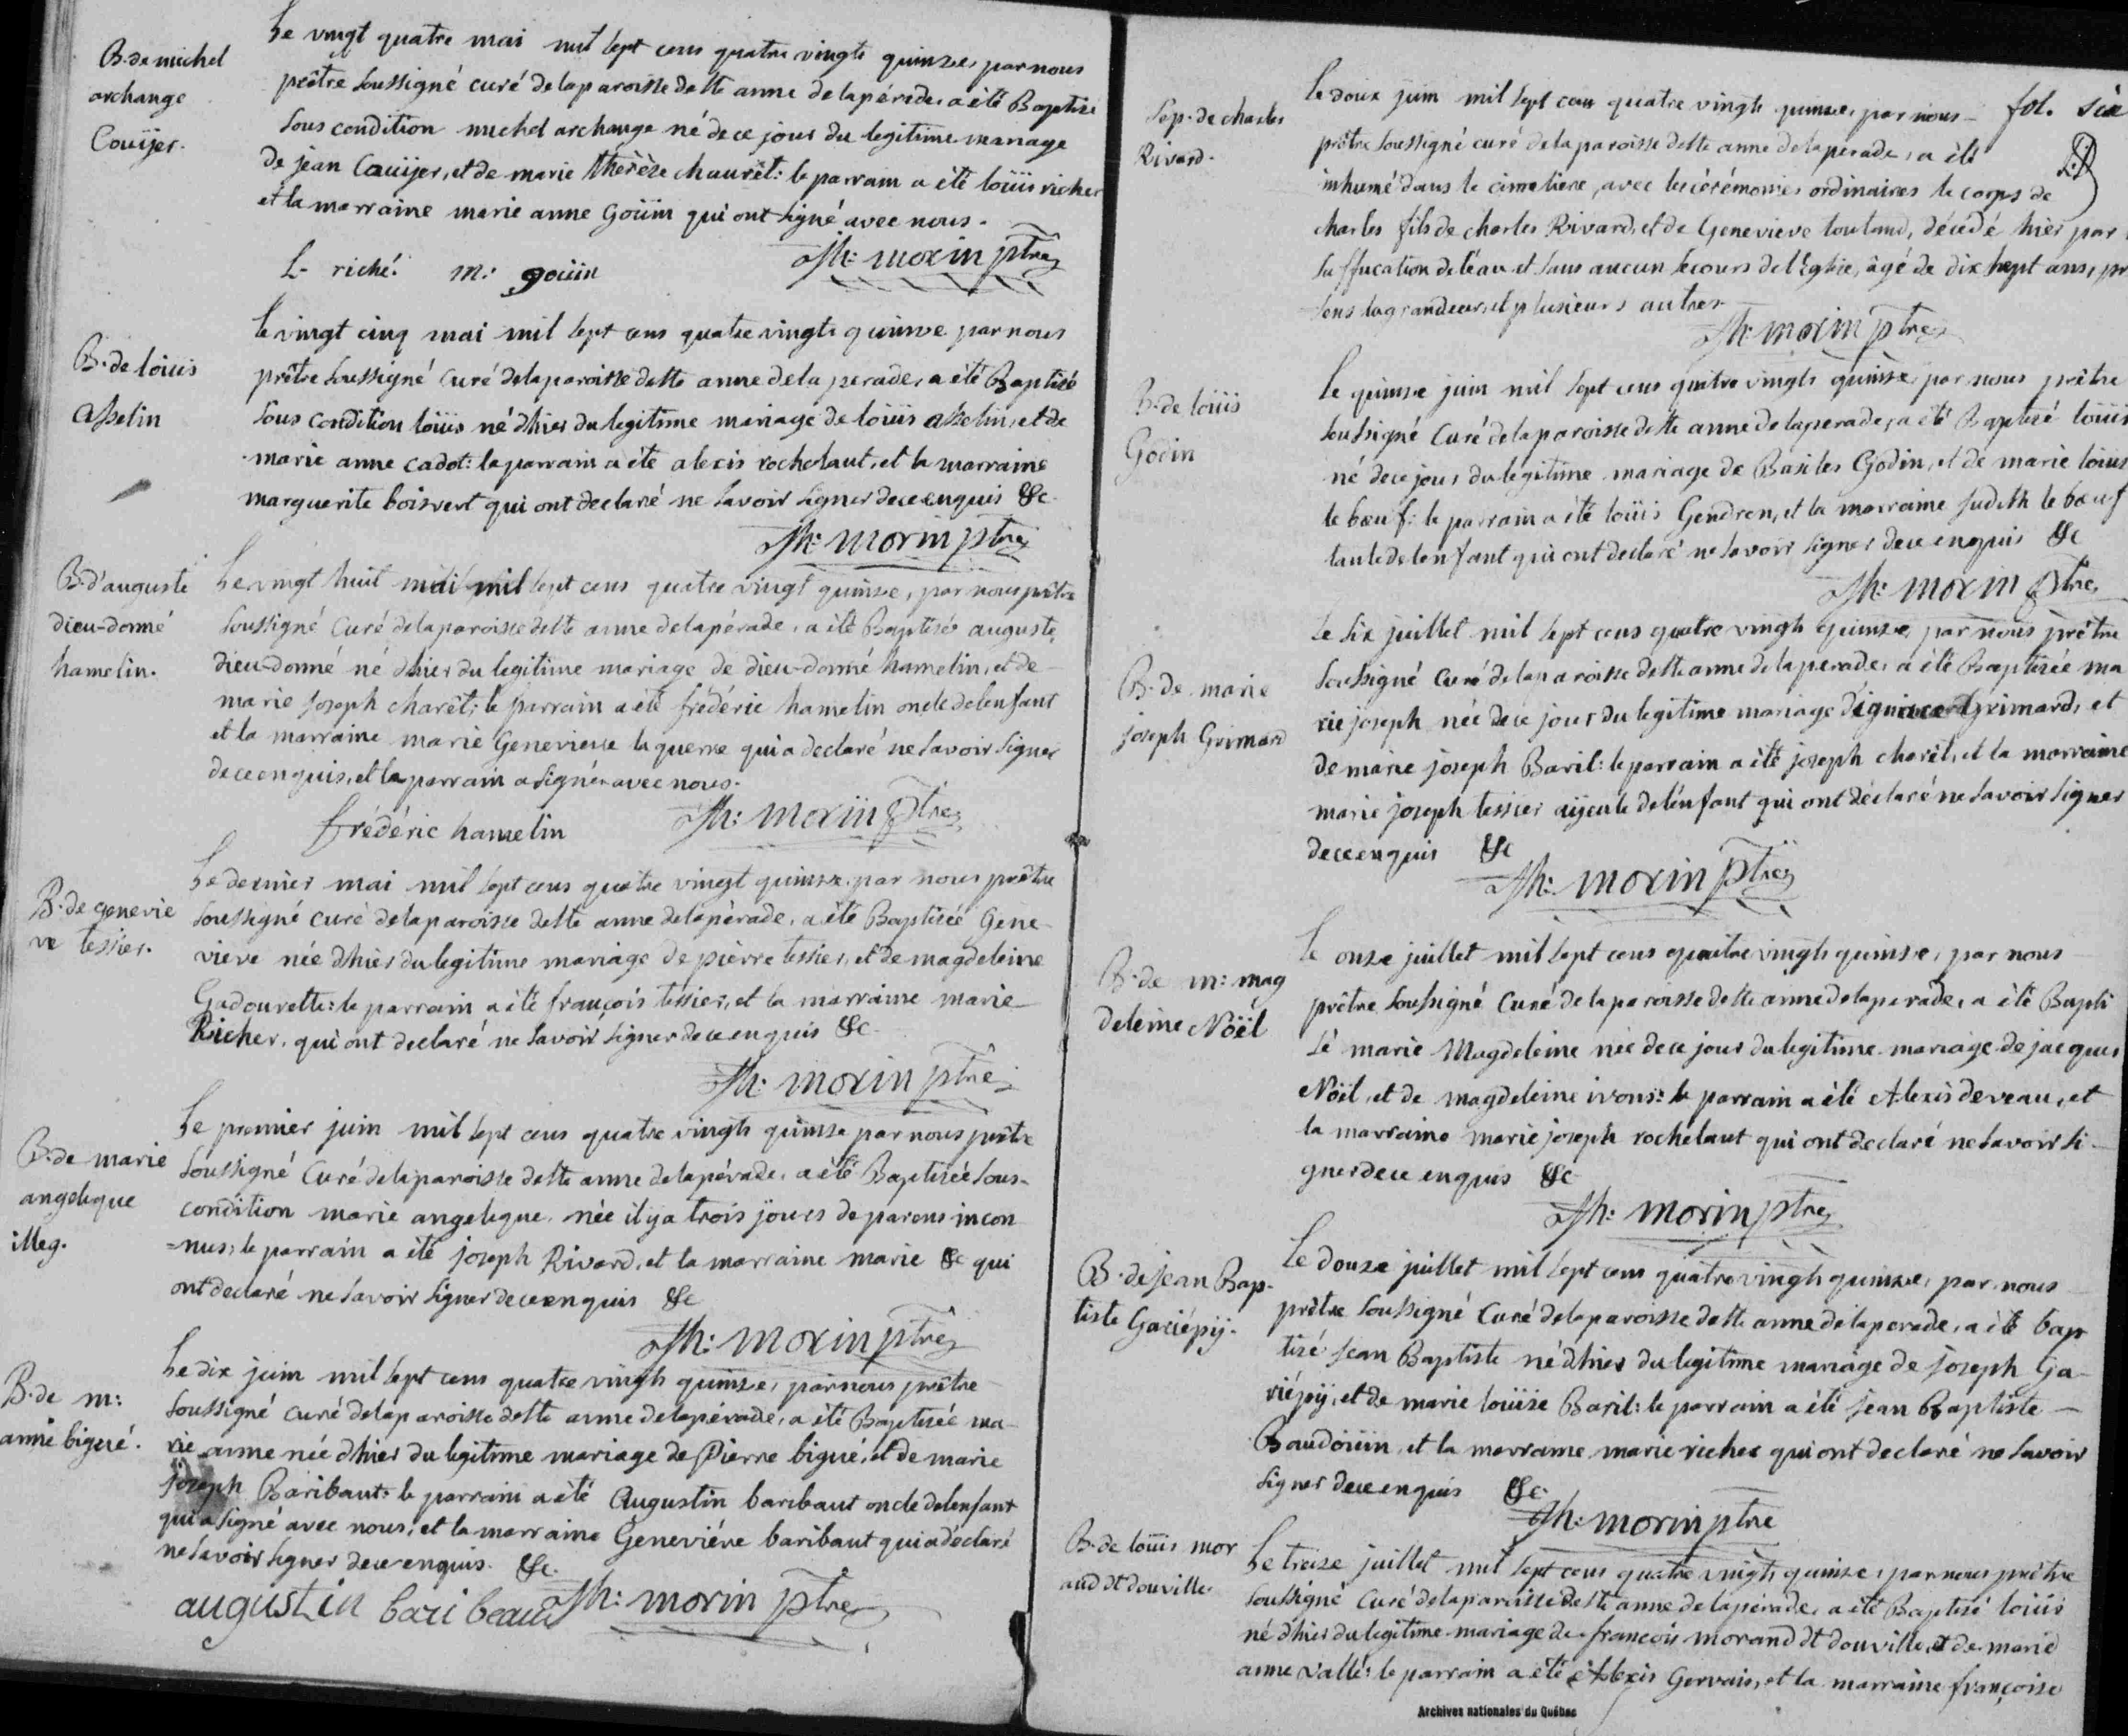 B. de michel
archange
Couijer.
Le vingt quatre mai mil sept cens quatre vingts quinze, par nous
prêtre soussigné curé de la paroisse de Ste anne de la pérade, a été Baptisé
sous condition michel archange né de ce jour du legitime mariage
de jean Couijer, et de marie thérèze chaurêt: le parrain a été loüis richer
et la marraine marie anne Goüin qui ont signé avec nous.
L. riché. m: goüin Th: morin ptre
B. de loüis
asselin
le vingt cinq mai mil sept cens quatre vingts quinze par nous
prêtre soussigné Curé de la paroisse de Ste anne de la perade, a été Baptisé
sous condition loüis né d'hier du legitime mariage de loüis asselin, et de
marie anne cadot: le parrain a été alexis rochelaut, et la marraine
marguerite boisvert qui ont declaré ne savoir signer de ce enquis &c.
Th: morin ptre
B. d'auguste
dieu-donné
hamelin.
Le vingt huit mai mil sept cens quatre vingt quinze, par nous prêtre
soussigné Curé de la paroisse de Ste anne de la pérade, a été Baptisé auguste
dieu-donné né d'hier du legitime mariage de dieu-donné hamelin, et de
marie joseph charêt; le parrain a été frédéric hamelin oncle de l'enfant
et la marraine marie Genevieve laquerre qui a declaré ne savoir signer
de ce enquis, et le parrain a signé avec nous.
frédéric hamelin Th: morin ptre
B. de genevie
ve tessier.
Le dernier mai mil sept cens quatre vingt quinze par nous prêtre
soussigné curé de la paroisse de Ste anne de la pérade, a été Baptisée Gene-
vieve née d'hier du legitime mariage de pierre tessier, et de magdeleine
Gadourette: le parrain a été françois tessier, et la marraine marie
Richer, qui ont declaré ne savoir signer de ce enquis &c.
Th: morin ptre
B. de marie
angelique
illeg.
Le premier juin mil sept cens quatre vingts quinze par nous prêtre
soussigné Curé de la paroisse de Ste anne de la pérade, a été Baptisée sous-
condition marie angelique, née il y a trois jours de parens incon
=nus; le parrain a été joseph Rivard, et la marraine marie &c qui
ont declaré ne savoir signer de ce enquis &c
Th: morin ptre
B. de m:
anne bigué.
Le dix juin mil sept cens quatre vingts quinze, par nous prêtre
soussigné curé de la paroisse de Ste anne de la pérade, a été Baptisée ma-
rie anne née d'hier du legitime mariage de Pierre bigué, et de marie
joseph Baribaut: le parrain a été Augustin baribaut oncle de l'enfant
qui a signé avec nous, et la marraine Geneviéve baribaut qui a déclaré
ne savoir signer de ce enquis. &c.
augustin baribeau Th: morin ptre
fol. six
Sep. de charles
Rivard.
le douze juin mil sept cens quatre vingts quinze, par nous
prêtre soussigné curé de la paroisse de Ste anne de la perade, a été
inhumé dans le cimetiere, avec les cérémonies ordinaires le corps de
charles fils de charles Rivard, et de Genevieve loutand, décédé hier par
suffucation de l'eau et sans aucun secours de l'Eglise, âgé de dix sept ans, pré
sens lagrandeur, et plusieurs autres
Th: morin ptre
B. de loüis
Godin
le quinze juin mil sept cens quatre vingts quinze, par nous prêtre
soussigné Curé de la paroisse de Ste anne de la perade, a été Baptisé loüis
né de ce jour du legitime mariage de Basiles Godin, et de marie loüis
le boeuf: le parrain a été loüis Gendron, et la marraine judith le boeuf
tante de l'enfant qui ont declaré ne savoir signer de ce enquis &c
Th: morin ptre
B. de marie
joseph Grimard
Le six juillet mil sept cens quatre vingts quinze, par nous prêtre
soussigné curé de la paroisse de Ste anne de la perade, a été Baptisée ma
rie joseph née de ce jour du legitime mariage Grimard, et
de marie joseph Baril: le parrain a été joseph charêt, et la marraine
marie joseph tessier aijeule de l'enfant qui ont déclaré ne savoir signer
de ce enquis &c
Th: morin ptre
B. de m: mag
deleine Noël
le onze juillet mil sept cens quatre vingts quinze, par nous
prêtre soussigné Curé de la paroisse de Ste anne de la perade, a été Bapti
sé marie Magdeleine née de ce jour du legitime mariage de jacques
Noël, et de magdeleine ivons: le parrain a été Alexis deveau, et
la marraine marie joseph rochelaut qui ont declaré ne savoir si-
gner de ce enquis &c
Th: morin ptre
B. de jean Bap-
tiste Gariépij.
Le douze juillet mil sept cens quatre vingts quinze, par nous
prêtre soussigné Curé de la paroisse de Ste anne de la perade, a été bap
tisé jean Baptiste né d'hier du legitime mariage de joseph Ga-
riépij, et de marie loüise Baril: le parrain a été jean Baptiste
Baudoüin, et la marraine marie richer qui ont declaré ne savoir
signer de ce enquis &c.
Th: morin ptre
B. de loüis mor
and dt douville
Le treize juillet mil sept cens quatre vingts quinze, par nous prêtre
soussigné Curé de la paroisse de Ste anne de la pérade, a été Baptisé loüis
né d'hier du legitime mariage de françois morand dt douville, et de marie
anne vallé: le parrain a été Alexis Gervais, et la marraine françoise
Archives nationales du Québec